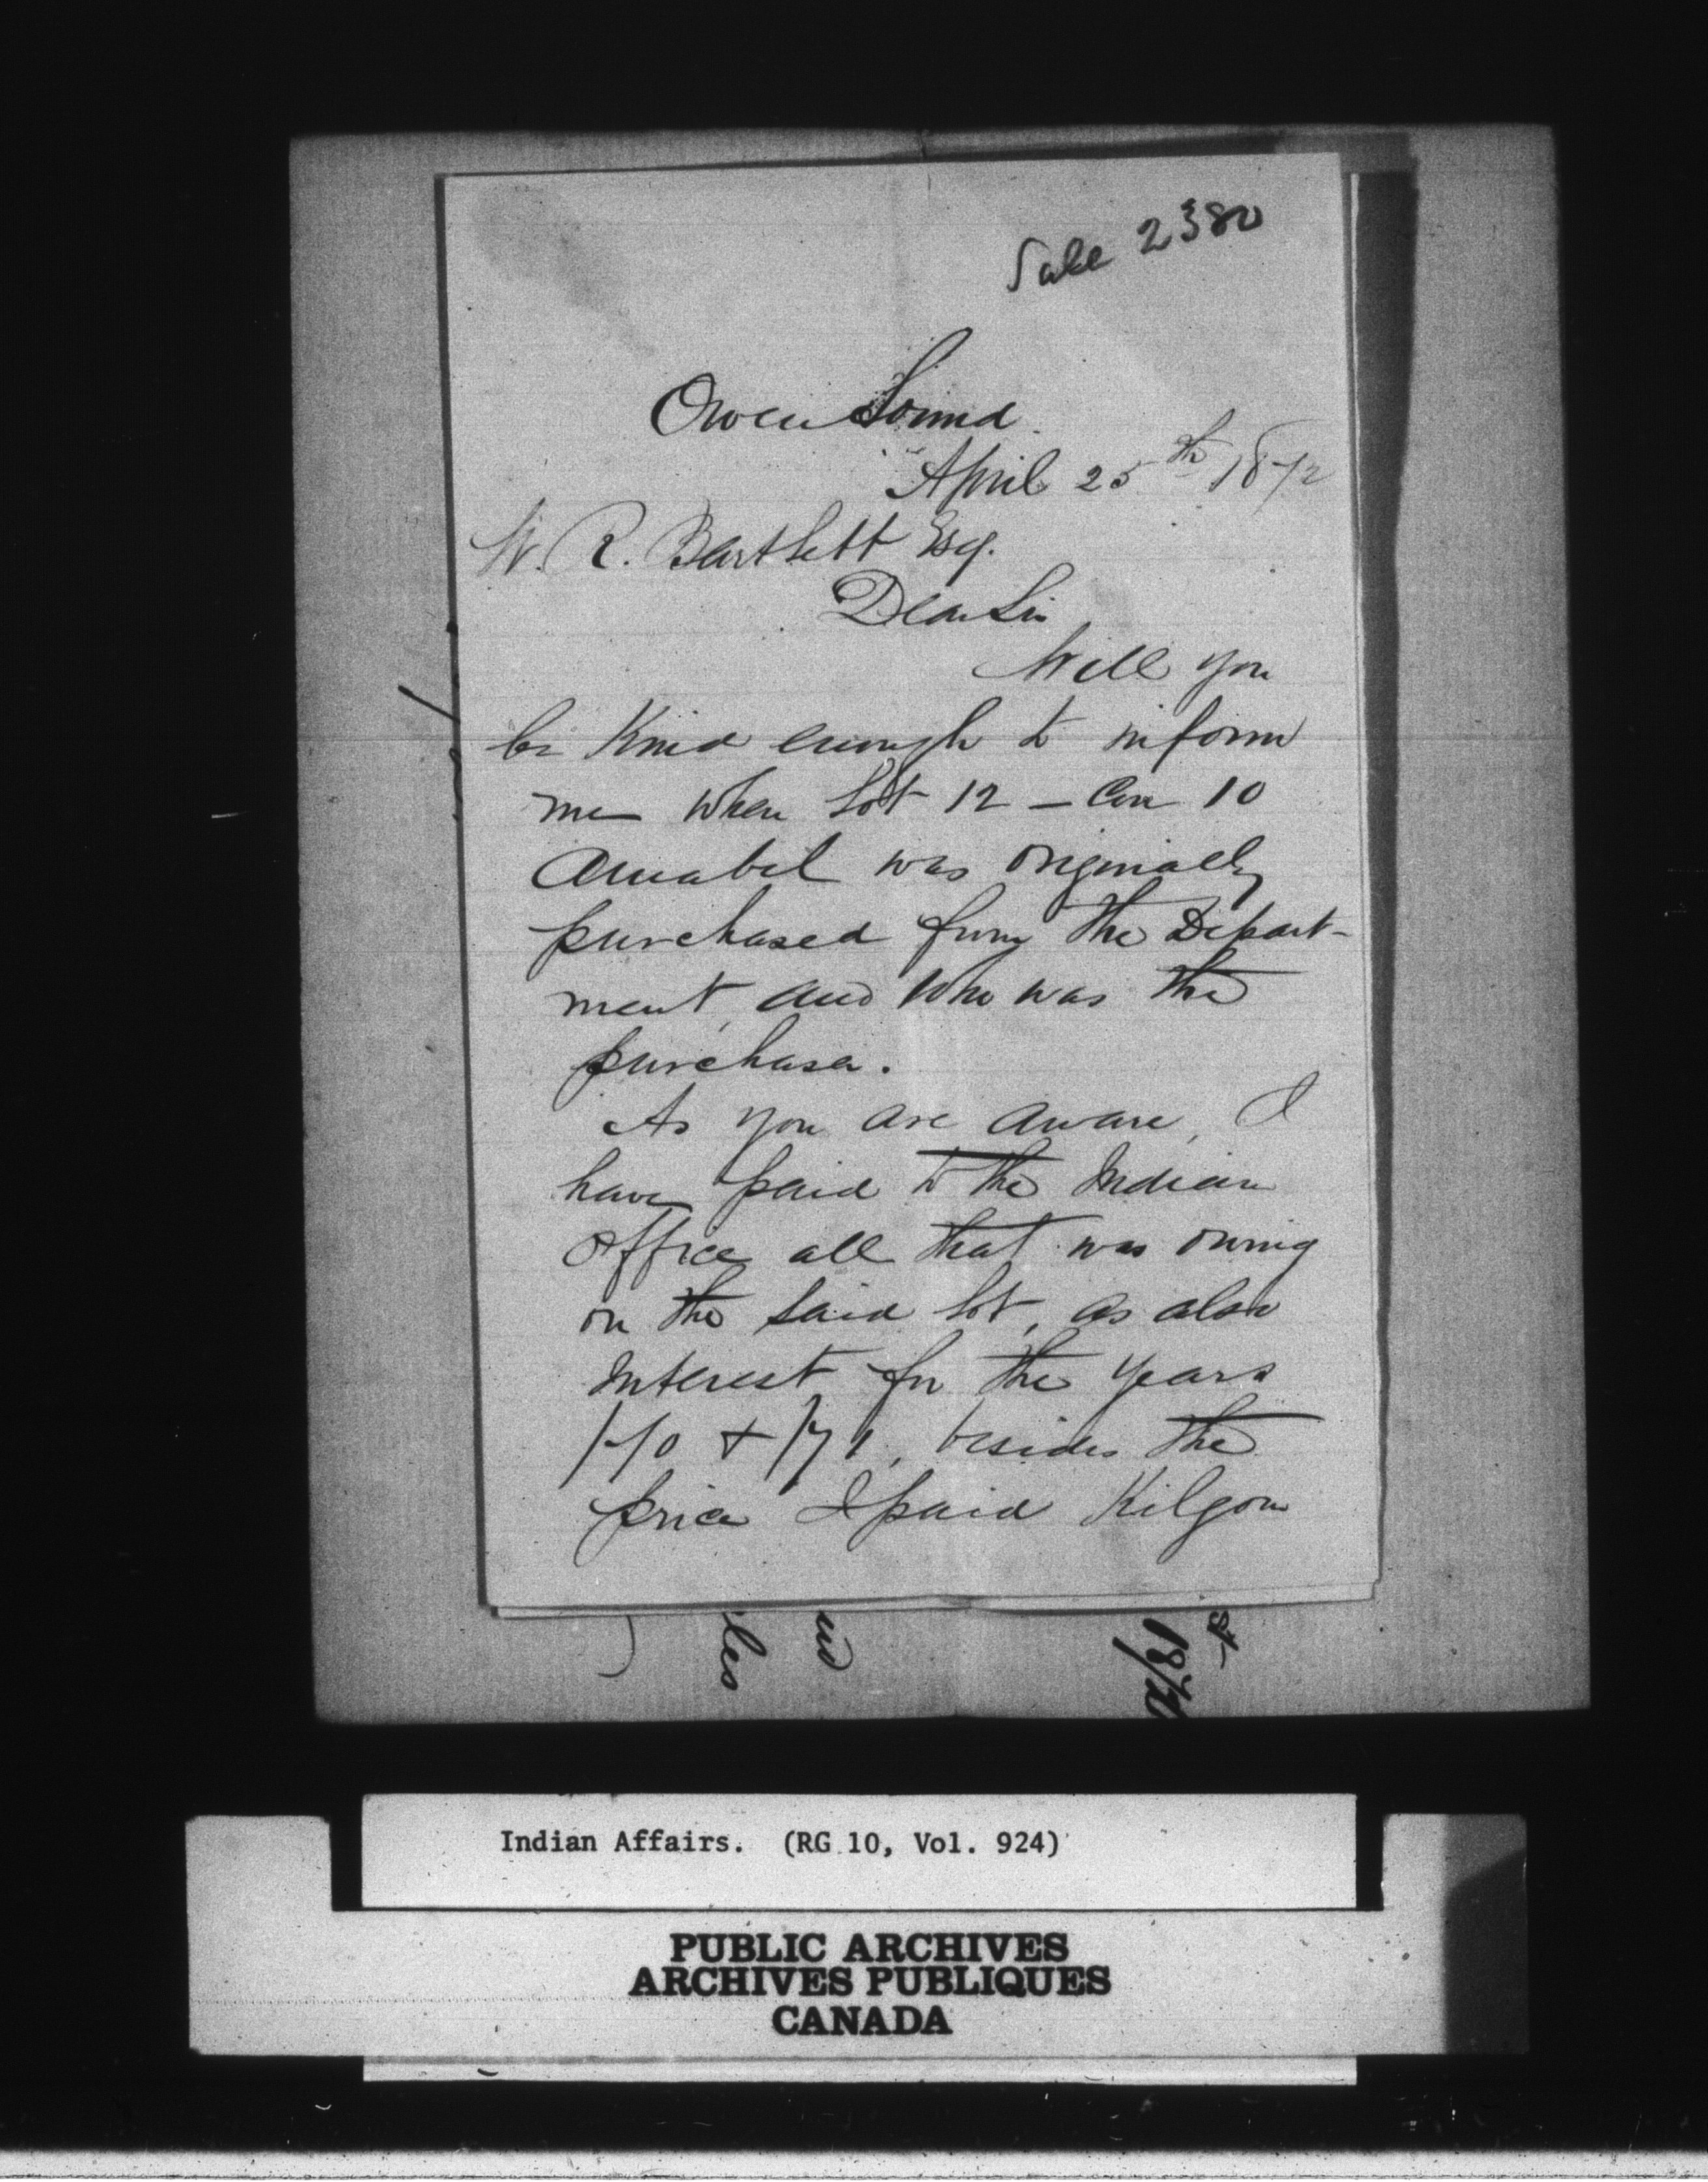 Sale 2380
Owen Sound
April 25th 1872
W. R. Bartlett Esq.
Dear Sir
Will you
be Kind enough to inform
me when Lot 12 – Con 10
Amabel was originally
purchased from the Depart-
ment, and who was the
purchaser.
As you are aware, I
have paid to the Indian
Office all that was owing
on the said lot, as also
Interest for the years
/70 + /71, besides the
price I paid Kilgour
les
st
1870
Indian Affairs. (RG 10, Vol. 924)
PUBLIC ARCHIVES
ARCHIVES PUBLIQUES
CANADA